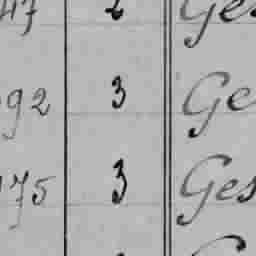 47 2 Ges
92 3 Ge
175 3 Ges